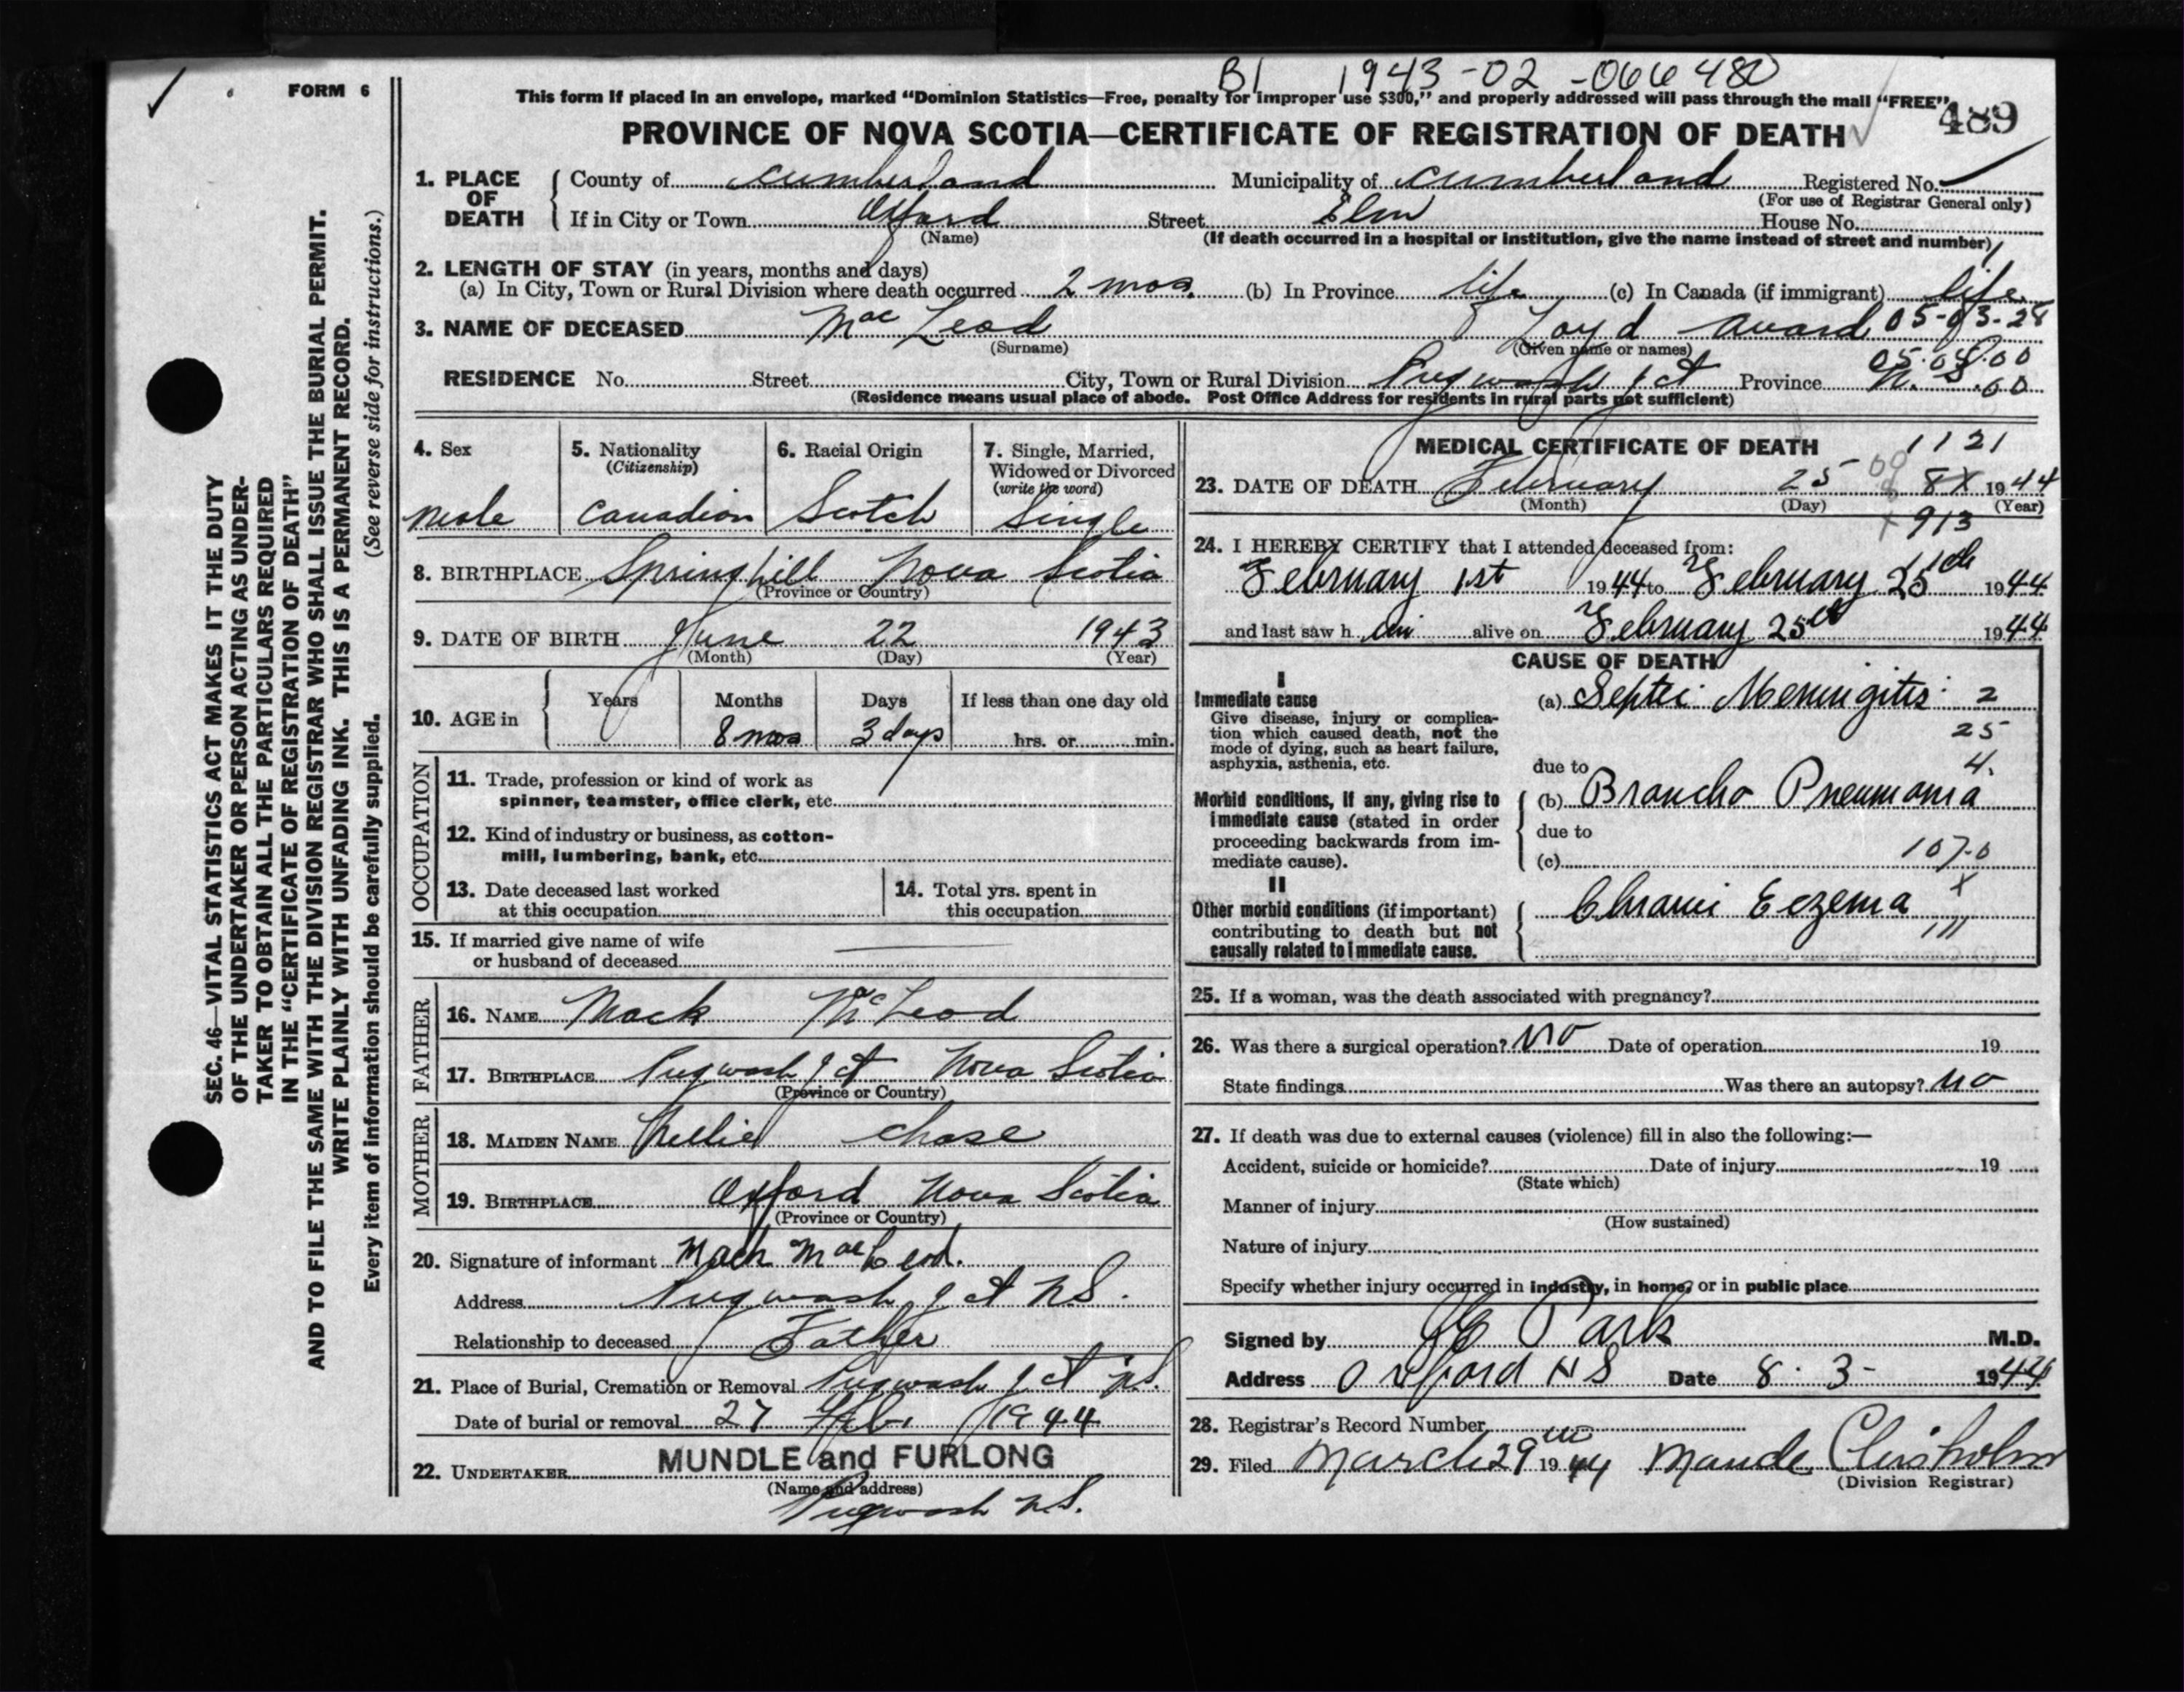 B1 1943-02-066480
FORM 6
This form if placed in an envelope, marked “Dominion Statistics—Free, penalty for improper use $300,” and properly addressed will pass through the mail “FREE”
489
PROVINCE OF NOVA SCOTIA—CERTIFICATE OF REGISTRATION OF DEATH
1. PLACE OF DEATH
County of Cumberland Municipality of Cumberland Registered No.
(For use of Registrar General only)
If in City or Town Oxford Street Elm House No.
(Name) (If death occurred in a hospital or institution, give the name instead of street and number)
2. LENGTH OF STAY (in years, months and days)
(a) In City, Town or Rural Division where death occurred 2 mos. (b) In Province life (c) In Canada (if immigrant) life
3. NAME OF DECEASED Mac Leod Loyd Award 05-03-28
(Surname) (Given name or names)
05.08.00
RESIDENCE No. Street City, Town or Rural Division Pugwash Jct Province N.S. .00
(Residence means usual place of abode. Post Office Address for residents in rural parts not sufficient)
4. Sex
male
5. Nationality
(Citizenship)
Canadian
6. Racial Origin
Scotch
7. Single, Married,
Widowed or Divorced
(write the word)
Single
8. BIRTHPLACE Springhill Nova Scotia
(Province or Country)
9. DATE OF BIRTH June 22 1943
(Month) (Day) (Year)
10. AGE in
Years Months Days If less than one day old
8 mos 3 days hrs. or min.
OCCUPATION
11. Trade, profession or kind of work as
spinner, teamster, office clerk, etc.
12. Kind of industry or business, as cotton-
mill, lumbering, bank, etc.
13. Date deceased last worked
at this occupation
14. Total yrs. spent in
this occupation
15. If married give name of wife
or husband of deceased
FATHER
16. NAME Mack McLeod
17. BIRTHPLACE Pugwash Jct Nova Scotia
(Province or Country)
MOTHER
18. MAIDEN NAME Nellie Chase
19. BIRTHPLACE Oxford Nova Scotia
(Province or Country)
20. Signature of informant Mack MacLeod.
Address Pugwash Jct N.S.
Relationship to deceased Father
21. Place of Burial, Cremation or Removal Pugwash Jct N.S.
Date of burial or removal 27 Feb. 1944
22. UNDERTAKER MUNDLE and FURLONG
(Name and address)
Pugwash N.S.
MEDICAL CERTIFICATE OF DEATH 1121
23. DATE OF DEATH February 25 8X 1944
(Month) (Day) (Year)
913
24. I HEREBY CERTIFY that I attended deceased from:
February 1st 1944 to February 25th 1944
and last saw h im alive on February 25th 1944
CAUSE OF DEATH
I
Immediate cause
Give disease, injury or complica-
tion which caused death, not the
mode of dying, such as heart failure,
asphyxia, asthenia, etc.
(a) Septic Meningitis 2
25
4.
due to
Morbid conditions, if any, giving rise to
immediate cause (stated in order
proceeding backwards from im-
mediate cause).
(b) Broncho Pneumonia
due to
(c) 107-0
II
Other morbid conditions (if important)
contributing to death but not
causally related to immediate cause.
Chronic Eczema X
111
25. If a woman, was the death associated with pregnancy?
26. Was there a surgical operation? No Date of operation 19
State findings Was there an autopsy? No
27. If death was due to external causes (violence) fill in also the following:—
Accident, suicide or homicide? Date of injury 19
(State which)
Manner of injury
(How sustained)
Nature of injury
Specify whether injury occurred in industry, in home, or in public place
Signed by Park M.D.
Address Oxford N S Date 8. 3- 1944
28. Registrar’s Record Number
29. Filed March 29th 1944 Maude Chisholm
(Division Registrar)
SEC. 46—VITAL STATISTICS ACT MAKES IT THE DUTY
OF THE UNDERTAKER OR PERSON ACTING AS UNDER-
TAKER TO OBTAIN ALL THE PARTICULARS REQUIRED
IN THE “CERTIFICATE OF REGISTRATION OF DEATH”
AND TO FILE THE SAME WITH THE DIVISION REGISTRAR WHO SHALL ISSUE THE BURIAL PERMIT.
WRITE PLAINLY WITH UNFADING INK. THIS IS A PERMANENT RECORD.
Every item of information should be carefully supplied. (See reverse side for instructions.)